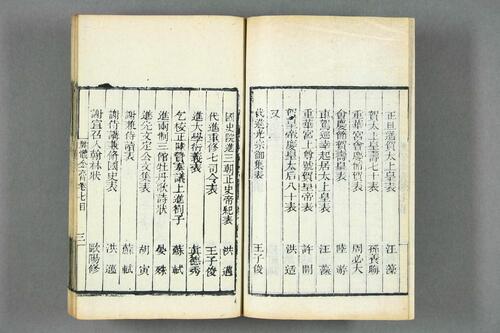 正旦進賀太上皇表 汪藻
賀太上皇壽七十表 孫覿
重華宮會慶節賀表 周必大
會慶節賀壽皇表 陸游
車駕過幸起居太上皇表 汪藻
重華宮上尊號賀皇帝表 許開
賀皇帝慶皇太后八十表 洪适
又
代進光宗御集表 王子俊
國史院進三朝正史帝紀表 洪邁
代進重修七司令表 王子俊
進大學衍義表 真德秀
乞校正陸贄奏議上進劄子 蘇軾
進兩制三館牡丹歌詩狀 晏殊
進先文定公文集表 胡寅
謝兼侍讀表 蘇軾
謝侍講兼脩國史表 洪邁
謝宣召入翰林狀 歐陽修
卷七目
三